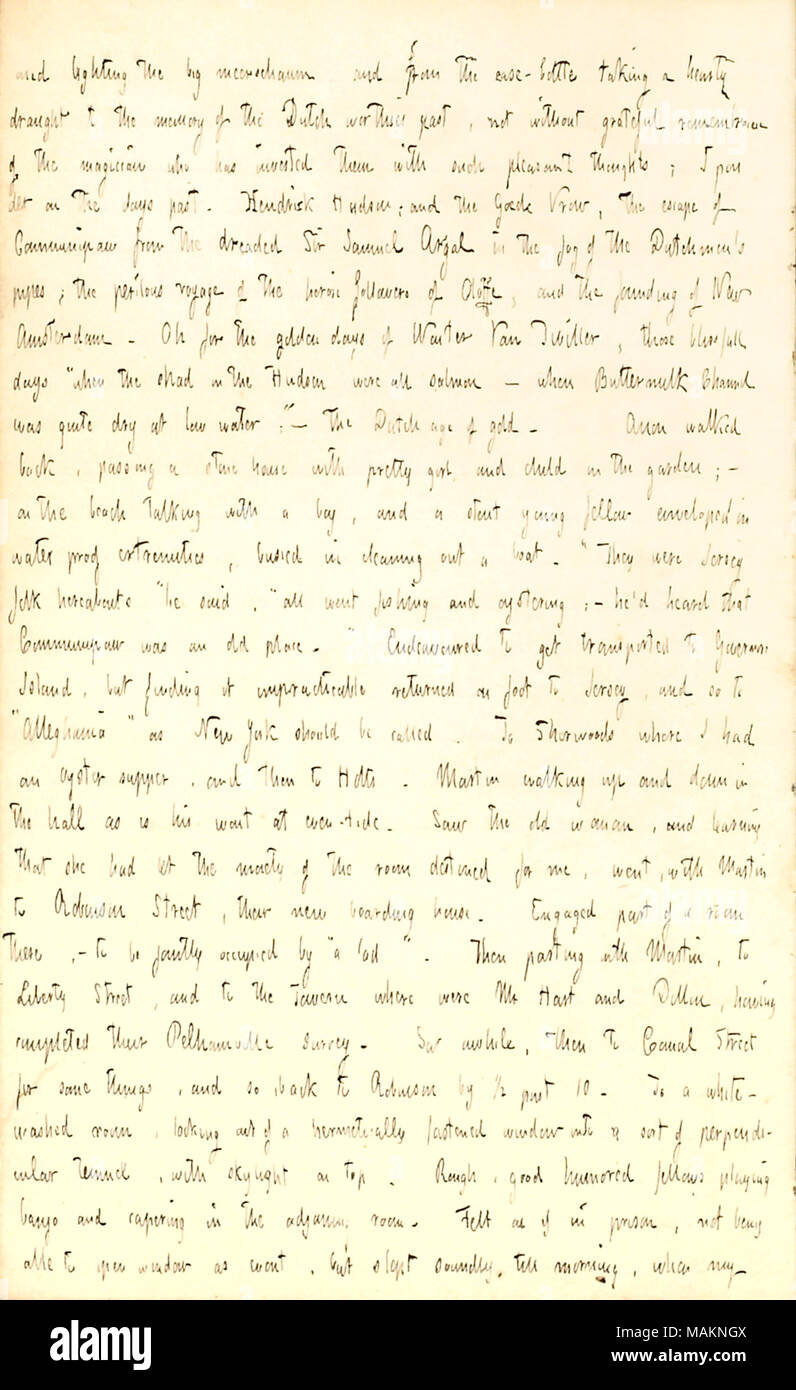 and lighting the big meerschaum and from the case-bottle taking a hearty
draught to the memory of the Dutch worthies past, not without grateful remembrance
of the magician who has invested them with such pleasant thoughts; I pon
der on the days past. Hendrick Hudson; and the Goede Vrow, the escape of
Communipaw from the dreaded Sir Samuel Argal in the fog of the Dutchmen's
pipes; the perilous voyage of the heroic followers of Oloffe, and the founding of New
Amsterdam. Oh for the golden days of Wouter Van Twiller, those blissfull
days "when the shad in the Hudson were all salmon - when Buttermilk Channel
was quite dry at low water;" - the Dutch age of gold - Anon walked
back, passing a stone house with pretty girl and child in the garden; -
on the beach talking with a boy, and a stout young fellow enveloped in
water proof extremities, busied in cleaning out a boat. "They were Jersey
folk hereabouts" he said, "all went fishing and oystering; - he'd heard that
Communipaw was an old place. " Endeavoured to get transported to Governors
Island, but finding it impracticable returned on foot to Jersey, and so to
"Alleghania" as New York should be called. To Sherwoods where I had
an oyster supper, and then to Holts. Martin walking up and down in
the hall as is his wont at even-tide. Saw the old woman, and learning
that she had let the moiety of the room destined for me, went, with Martin
to Robinson Street, their new boarding house. Engaged part of a room
there, - to be jointly occupied by "a lad ". Then parting with Martin, to
Liberty Street, and to the Tavern where were Mr Hart and Dillon, having
completed their Pelhamville survey. Sat awhile, then to Canal Street
for some things, and so back to Robinson by ½ past 10 - To a white-
washed room, looking out of a hermetically fastened window into a sort of perpendi-
cular tunnel, with skylight on top. Rough, good humored fellows playing
banjo and capering in the adjoining room. Felt as if in prison, not being
able to open window as wont, but slept soundly, till morning, when my
alamy
Image ID: MAKNGX
www.alamy.com